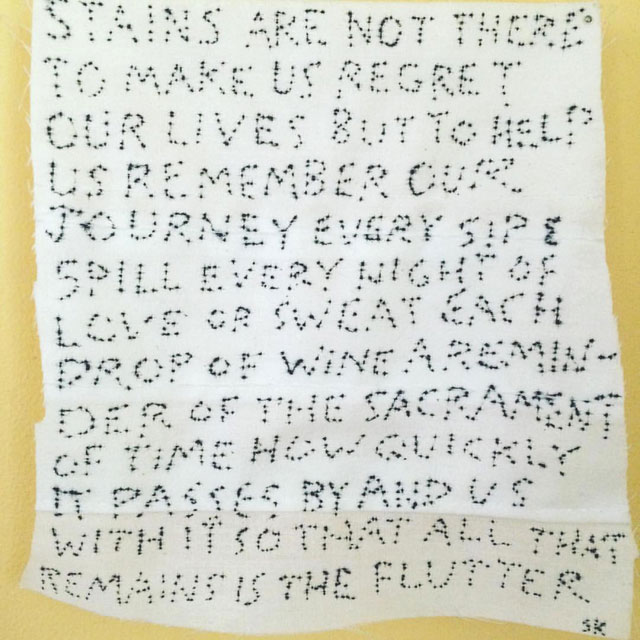 STAINS ARE NOT THERE
TO MAKE US REGRET
OUR LIVES BUT TO HELP
US REMEMBER OUR
JOURNEY EVERY SIP &
SPILL EVERY NIGHT OF
LOVE OR SWEAT EACH
DROP OF WINE A REMIN-
DER OF THE SACRAMENT
OF TIME HOW QUICKLY
IT PASSES BY AND US
WITH IT SO THAT ALL THAT
REMAINS IS THE FLUTTER
SK